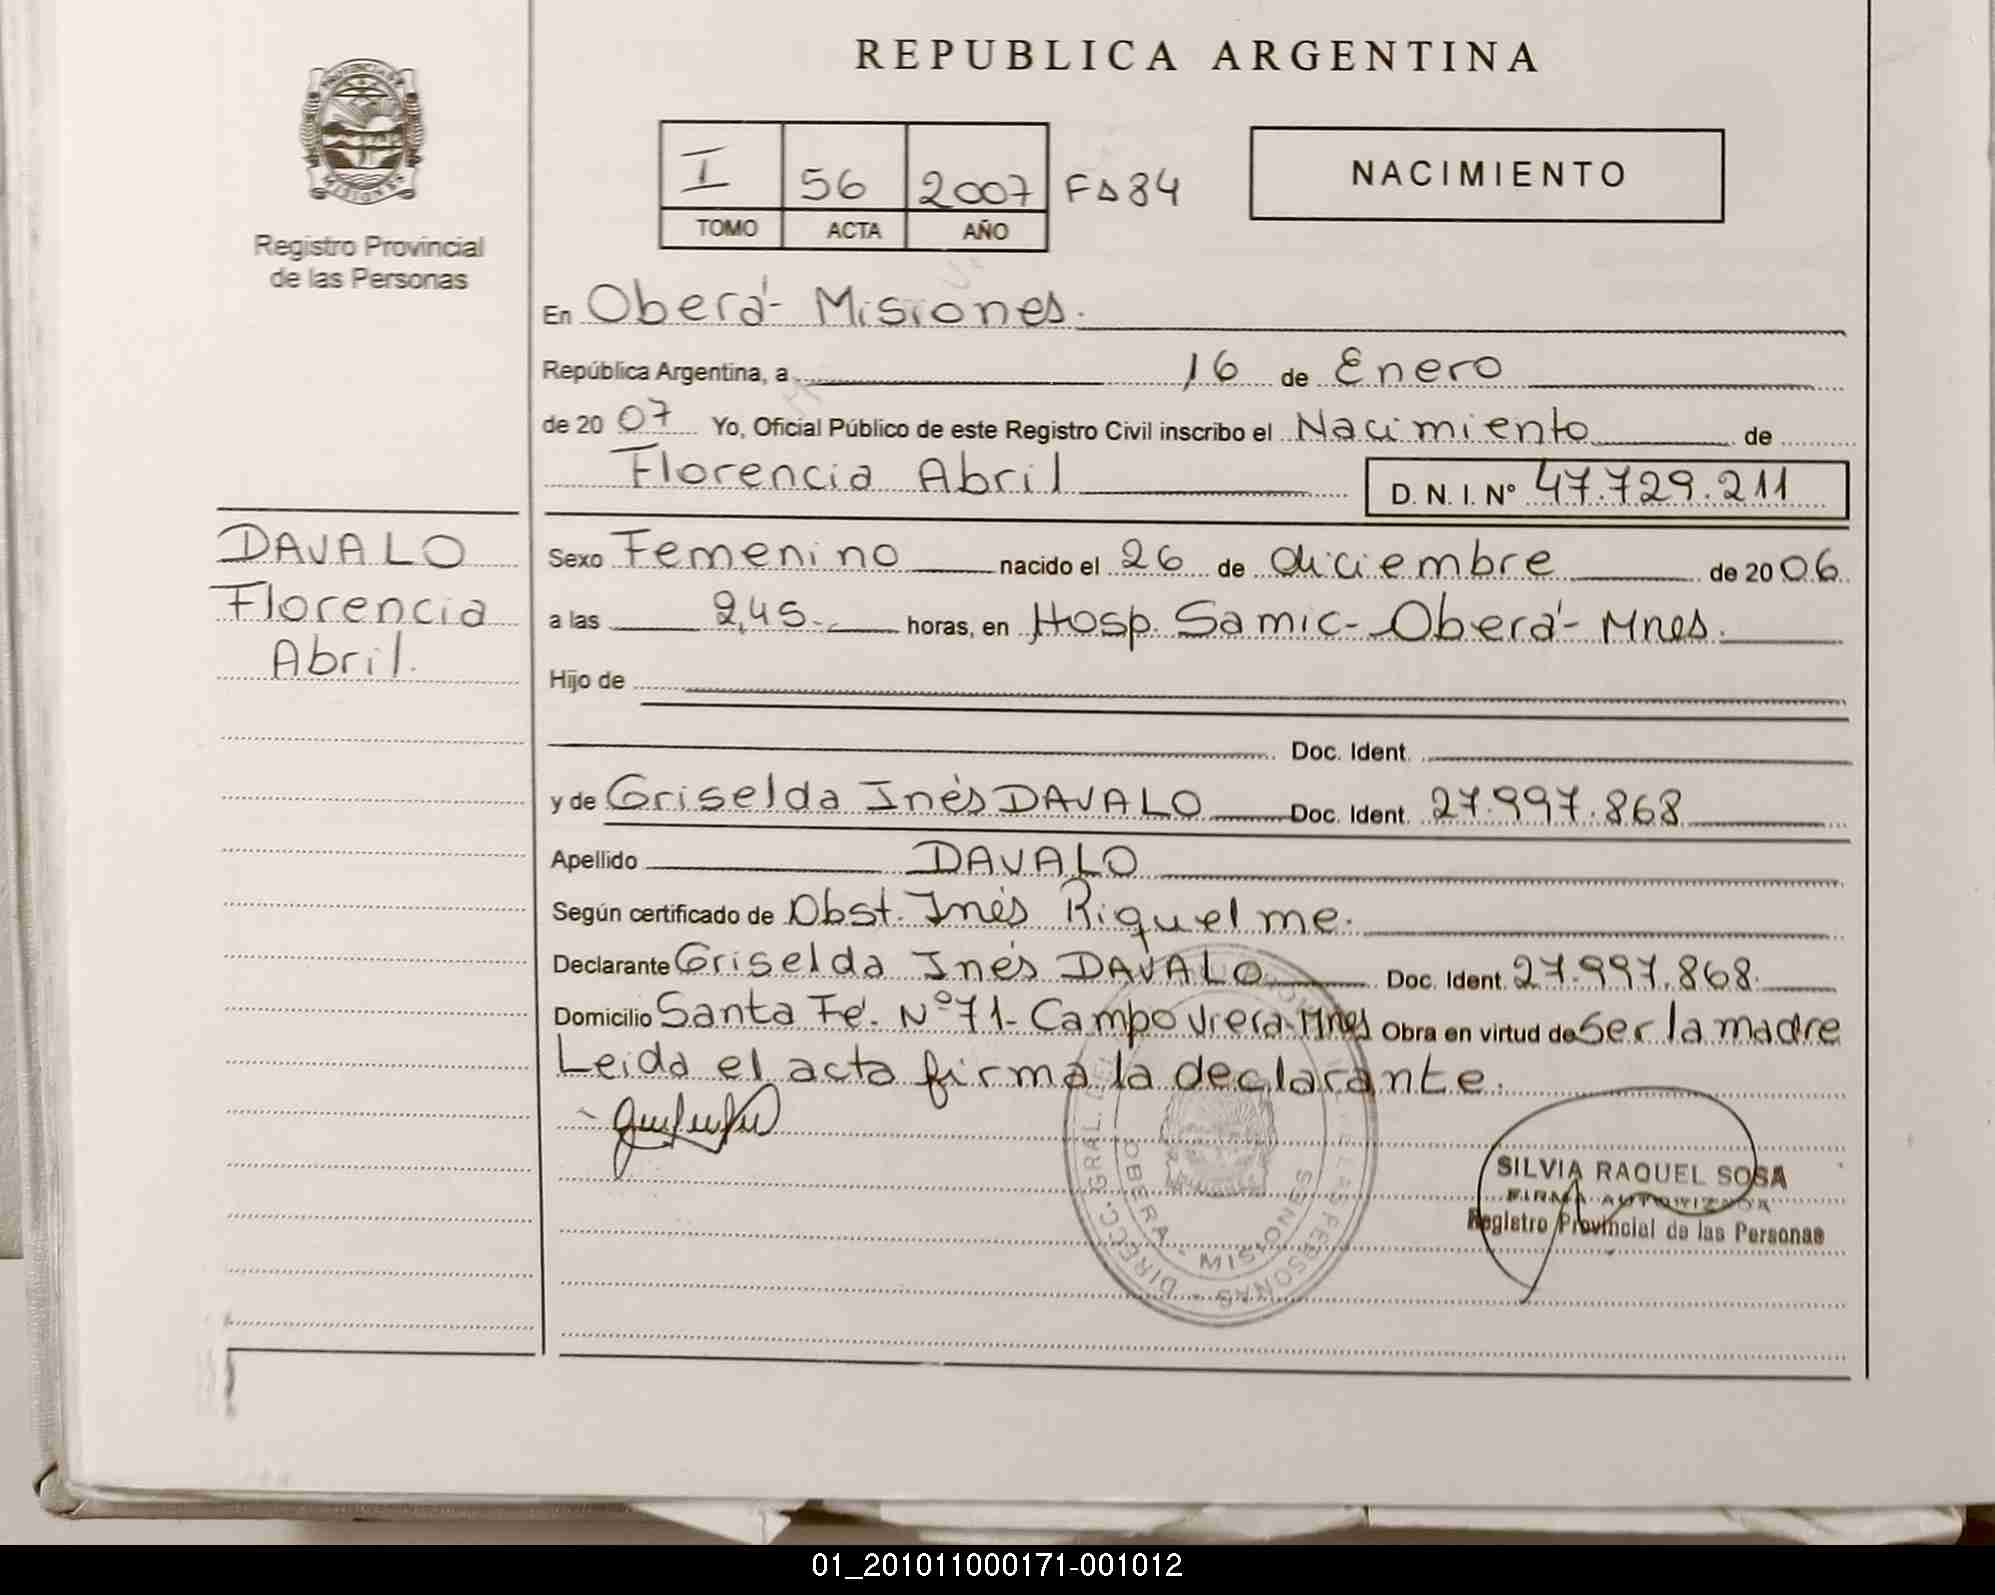 REPUBLICA ARGENTINA
PROVINCIA DE
MISIONES
Registro Provincial
de las Personas
I 56 2007 Fº 84
TOMO ACTA AÑO
NACIMIENTO
En Oberá - Misiones.
República Argentina, a 16 de Enero
de 20 07 Yo, Oficial Público de este Registro Civil inscribo el Nacimiento de
Florencia Abril D. N. I. Nº 47.729.211
DAVALO
Florencia
Abril.
Sexo Femenino nacido el 26 de diciembre de 20 06
a las 2,45.- horas, en Hosp. Samic - Oberá - Mnes.
Hijo de
Doc. Ident.
y de Griselda Inés DAVALO Doc. Ident. 27.997.868
Apellido DAVALO
Según certificado de Obst. Inés Riquelme.
Declarante Griselda Inés DAVALO Doc. Ident. 27.997.868.
Domicilio Santa Fé. Nº 71 - Campo Viera - Mnes Obra en virtud de Ser la madre
Leida el acta firma la declarante.
DIRECC. GRAL. DEL LAS PERSONAS
OBERA - MISIONES
SILVIA RAQUEL SOSA
FIRMA AUTORIZADA
Registro Provincial de las Personas
01_201011000171-001012